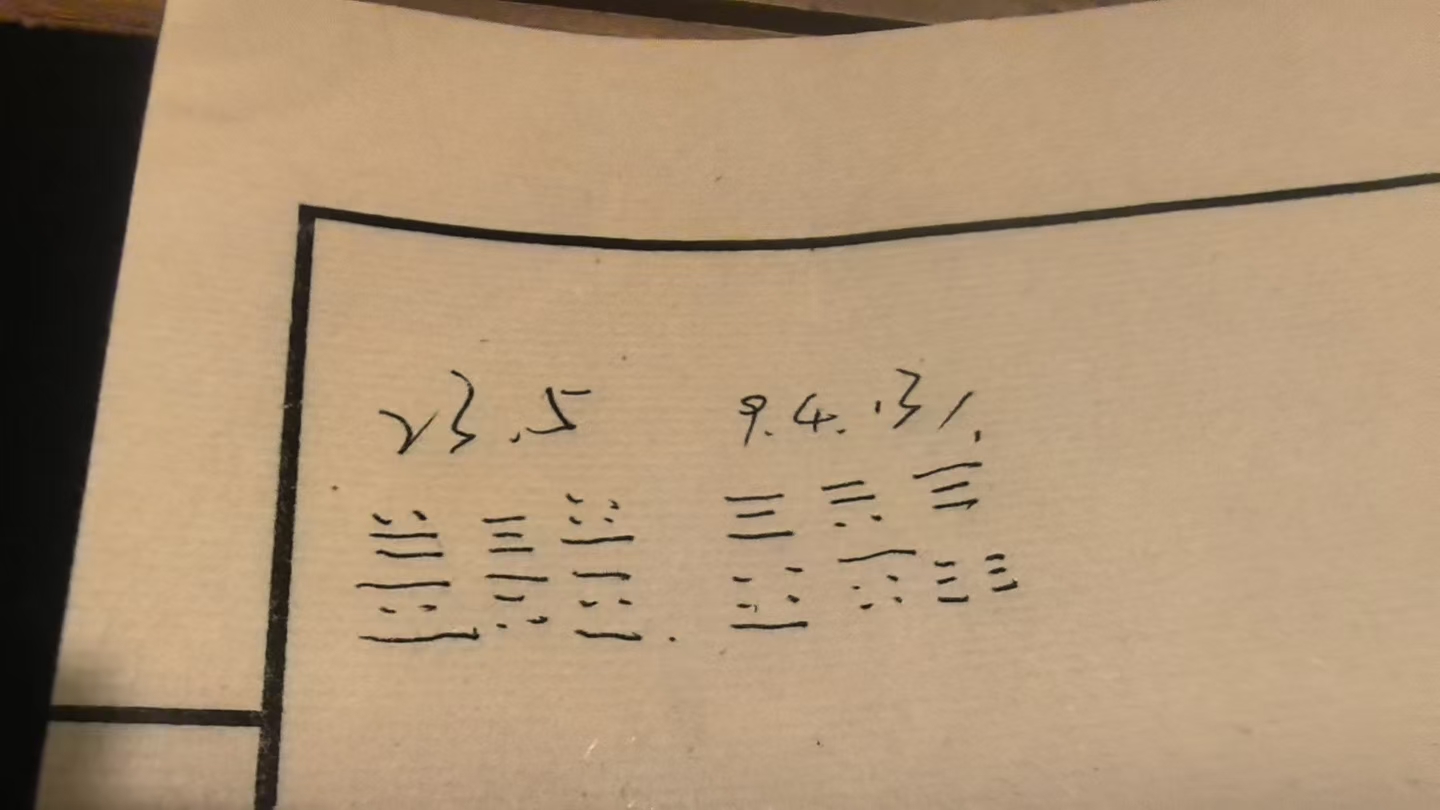 23.5 9.4.131.